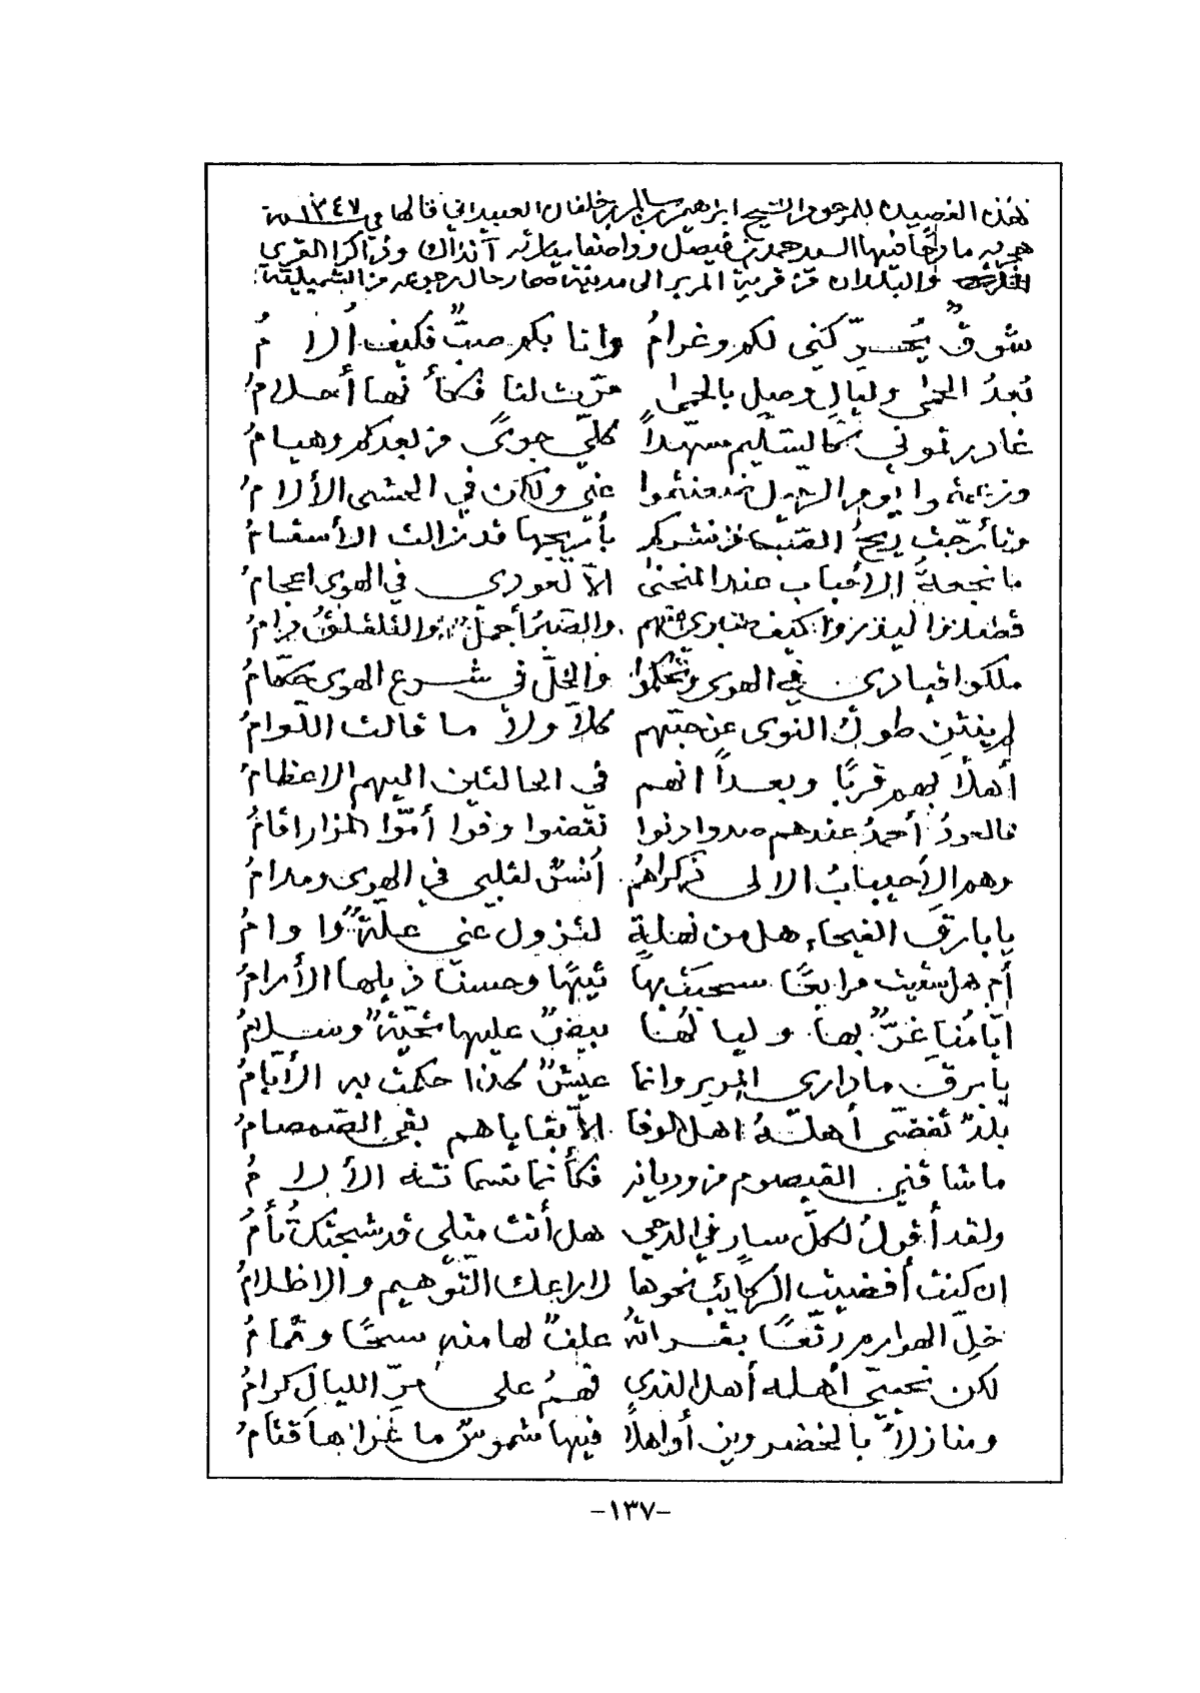 هذه القصيدة للمرحوم الشيخ ابراهيم بن سالم بن خلفان العبيداني قالها في سنة ١٣٤٧
هجريه مادحًا فيها السيد حمد بن فيصل وواصفا سيارته آنذاك وذاكرا القرى
والبلدان من قرية المرير الى مدينة صحار حال رجوعه من الشميلية
شوقٌ يُحرّكني لكم وغرامُ وانا بكم صبٌّ فكيف أُلامُ
بُعدُ الحمى وليالِ وصلٍ بالحمى مرّت لنا فكأنها أحلامُ
غادرتموني كالسليم مسهّداً كلّي جوىً من بعدكم وهيامُ
وزعمتموا يوم عني ولكن في الحشى الآلامُ
وتأرّجت ريحُ الصّبا من نشركم بأريجها قد زالت الأسقامُ
ما نجعةَ الاحباب عند المنحنى الاّ لعودي في الهوى اعجامُ
كيف والصبرُ أجملُ
ملكوا قيادي في الهوى وتحكّموا والخلّ في شرع الهوى حكّامُ
لم يثنِنِ طولُ النوى عن حبّهم كلاّ ولا ما قالت اللّوامُ
أهلاً بهم قربًا وبعداً انهم في الحالتين اليهم الاعظامُ
فالعودُ أحمدُ عندهم صدوا دنوا نقضوا وفوا أمّوا المزار اقامُوا
وهم الأحيبابُ الالى ذكراهُمُ أنسٌ لقلبي في الهوى ومدامُ
يا بارقَ الفيحاء هل من نهلةٍ لتزول عني علّةٌ وأوامُ
أم هل سقيت مرابعًا سحبت بها تيهًا وحسنًا ذيلها الأرامُ
ايّامُنا غرٌّ بها وليالُنا بيضٌ عليها تحيّةٌ وسلامُ
يا برقُ ما داري المرير وانما عيشٌ كهذا حكمت به الأيّامُ
بلدٌ تقضّى أهلهُ اهل الوفا الاّ بقاياهم بقي الصّمصامُ
ما شاقني القيصوم من فكأنما
ولقد أقولُ لكلّ سارٍ في الدجى هل أنت مثلي قد شجتك
ان كنت أفضيت الركائب نحوها لا راعك التوهيم والاظلامُ
خلِّ الهوارم رتّعًا علفٌ لها منه سمحًا وثمامُ
لكن تحيّتي أهله أهل الندى فهمُ على مرّ الليالي كرامُ
ومنازلاً بالخضروين أواهلاً فيها شموسٌ ما قتامُ
-١٣٧-